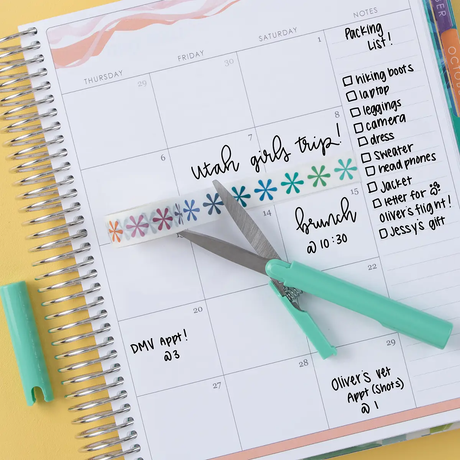 THURSDAY
FRIDAY
SATURDAY
NOTES
29
30
1
Packing
List!
hiking boots
laptop
leggings
camera
dress
sweater
headphones
Jacket
letter for
oliver's flight!
Jessy's gift
6
7
8
Utah girls trip!
13
14
15
brunch
@ 10:30
20
22
DMV Appt!
@ 3
27
28
29
Oliver's vet
Appt (shots)
@ 1
OCTOBER